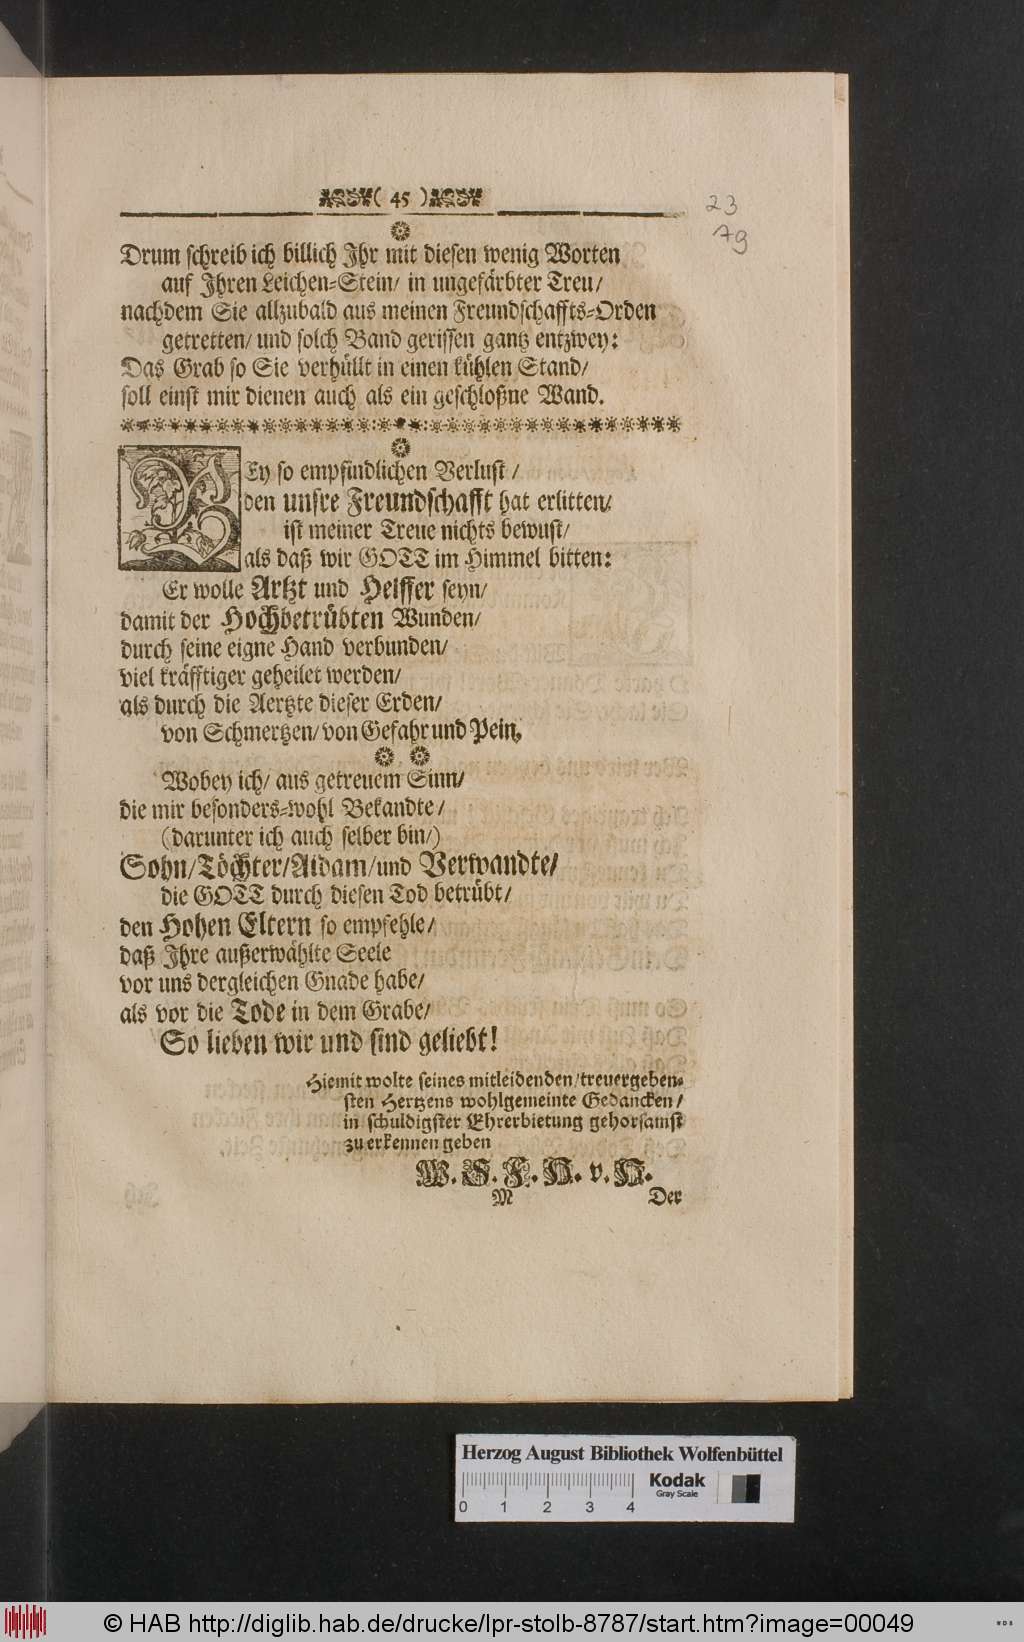 ( 45 )
23
79
Drum schreib ich billich Ihr mit diesen wenig Worten
auf Ihren Leichen-Stein/ in ungefärbter Treu/
nachdem Sie allzubald aus meinen Freundschaffts-Orden
getretten/ und solch Band gerissen gantz entzwey:
Das Grab so Sie verhüllt in einen kühlen Stand/
soll einst mir dienen auch als ein geschloßne Wand.
BEy so empfindlichen Verlust /
den unsre Freundschafft hat erlitten/
ist meiner Treue nichts bewust/
als daß wir GOTT im Himmel bitten:
Er wolle Artzt und Helffer seyn/
damit der Hochbetrübten Wunden/
durch seine eigne Hand verbunden/
viel kräfftiger geheilet werden/
als durch die Aertzte dieser Erden/
von Schmertzen/ von Gefahr und Pein.
Wobey ich/ aus getreuem Sinn/
die mir besonders-wohl Bekandte/
(darunter ich auch selber bin/)
Sohn/ Töchter/ Aidam/ und Verwandte/
die GOTT durch diesen Tod betrübt/
den Hohen Eltern so empfehle/
daß Ihre außerwählte Seele
vor uns dergleichen Gnade habe/
als vor die Tode in dem Grabe/
So lieben wir und sind geliebt!
Hiemit wolte seines mitleidenden/ treuergeben-
sten Hertzens wohlgemeinte Gedancken/
in schuldigster Ehrerbietung gehorsamst
zu erkennen geben
W. S. F. H. v. H.
M Der
Herzog August Bibliothek Wolfenbüttel
Kodak
Gray Scale
0 1 2 3 4
© HAB http://diglib.hab.de/drucke/lpr-stolb-8787/start.htm?image=00049